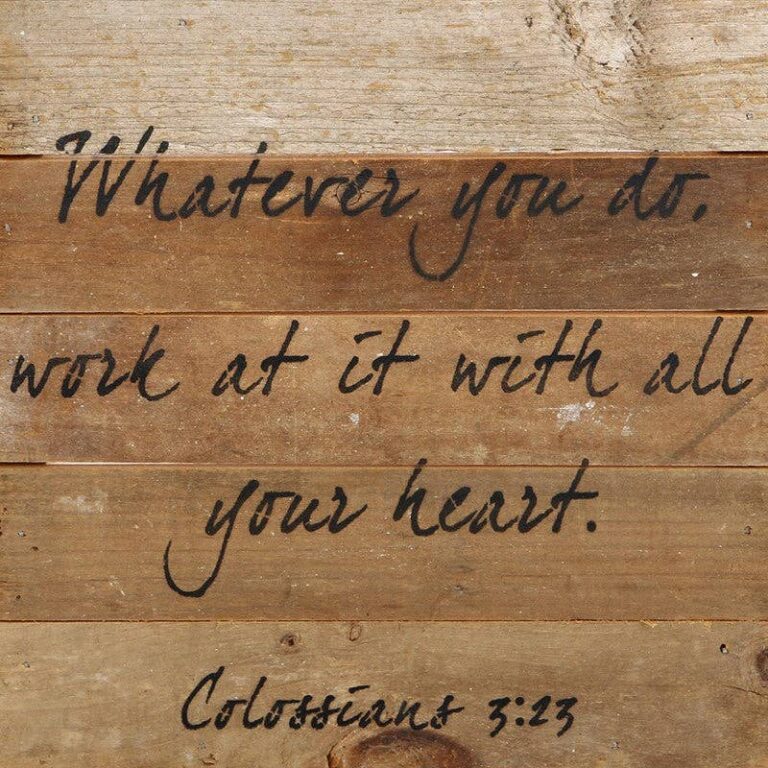 Whatever you do,
work at it with all
your heart.
Colossians 3:23